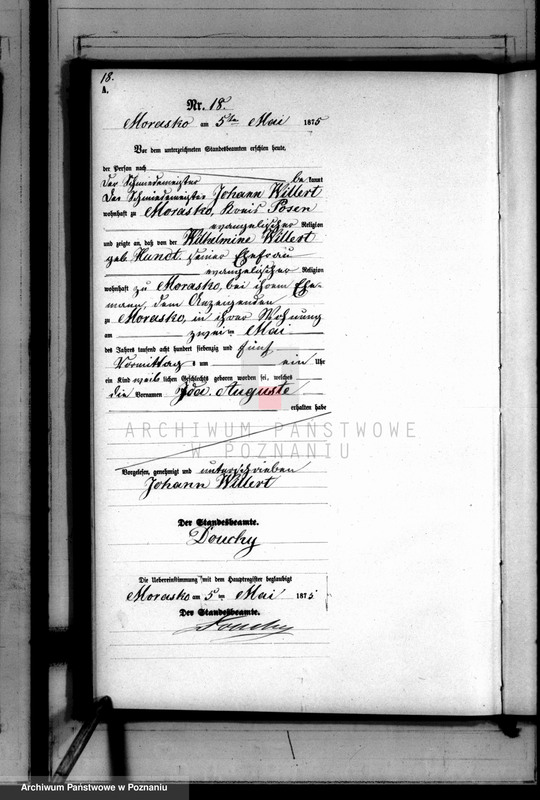 18.
A.
Nr. 18.
Morasko am 5ten Mai 1875
Vor dem unterzeichneten Standesbeamten erschien heute,
der Person nach
der Schmiedemeister be kannt
Der Schmiedemeister Johann Willert
wohnhaft zu Morasko, Kreis Posen
evangelischer Religion
und zeigte an, daß von der Wilhelmine Willert
geb. Hundt. seiner Ehefrau
evangelischer Religion
wohnhaft zu Morasko, bei ihrem Ehe-
mann, dem Anzeigenden
zu Morasko, in ihrer Wohnung
am zwei ten Mai
des Jahres tausend acht hundert siebenzig und fünf
Vormittag s um ein Uhr
ein Kind weib lichen Geschlechts geboren worden sei, welches
die Vornamen Ida. Auguste
erhalten habe
ARCHIWUM PAŃSTWOWE
W POZNANIU
Vorgelesen, genehmigt und unterschrieben
Johann Willert
Der Standesbeamte.
Douchy
Die Uebereinstimmung mit dem Hauptregister beglaubigt
Morasko am 5 ten Mai 1875
Der Standesbeamte.
Douchy
Archiwum Państwowe w Poznaniu